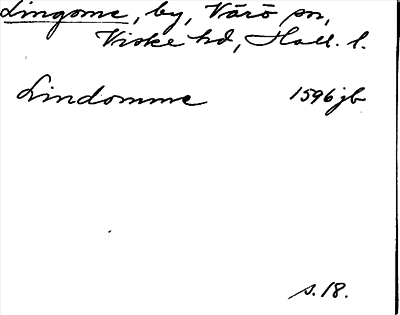 Lingome, by, Värö sn,
Viske hd, Hall. l.
Lindomme 1596 jb
s. 18.